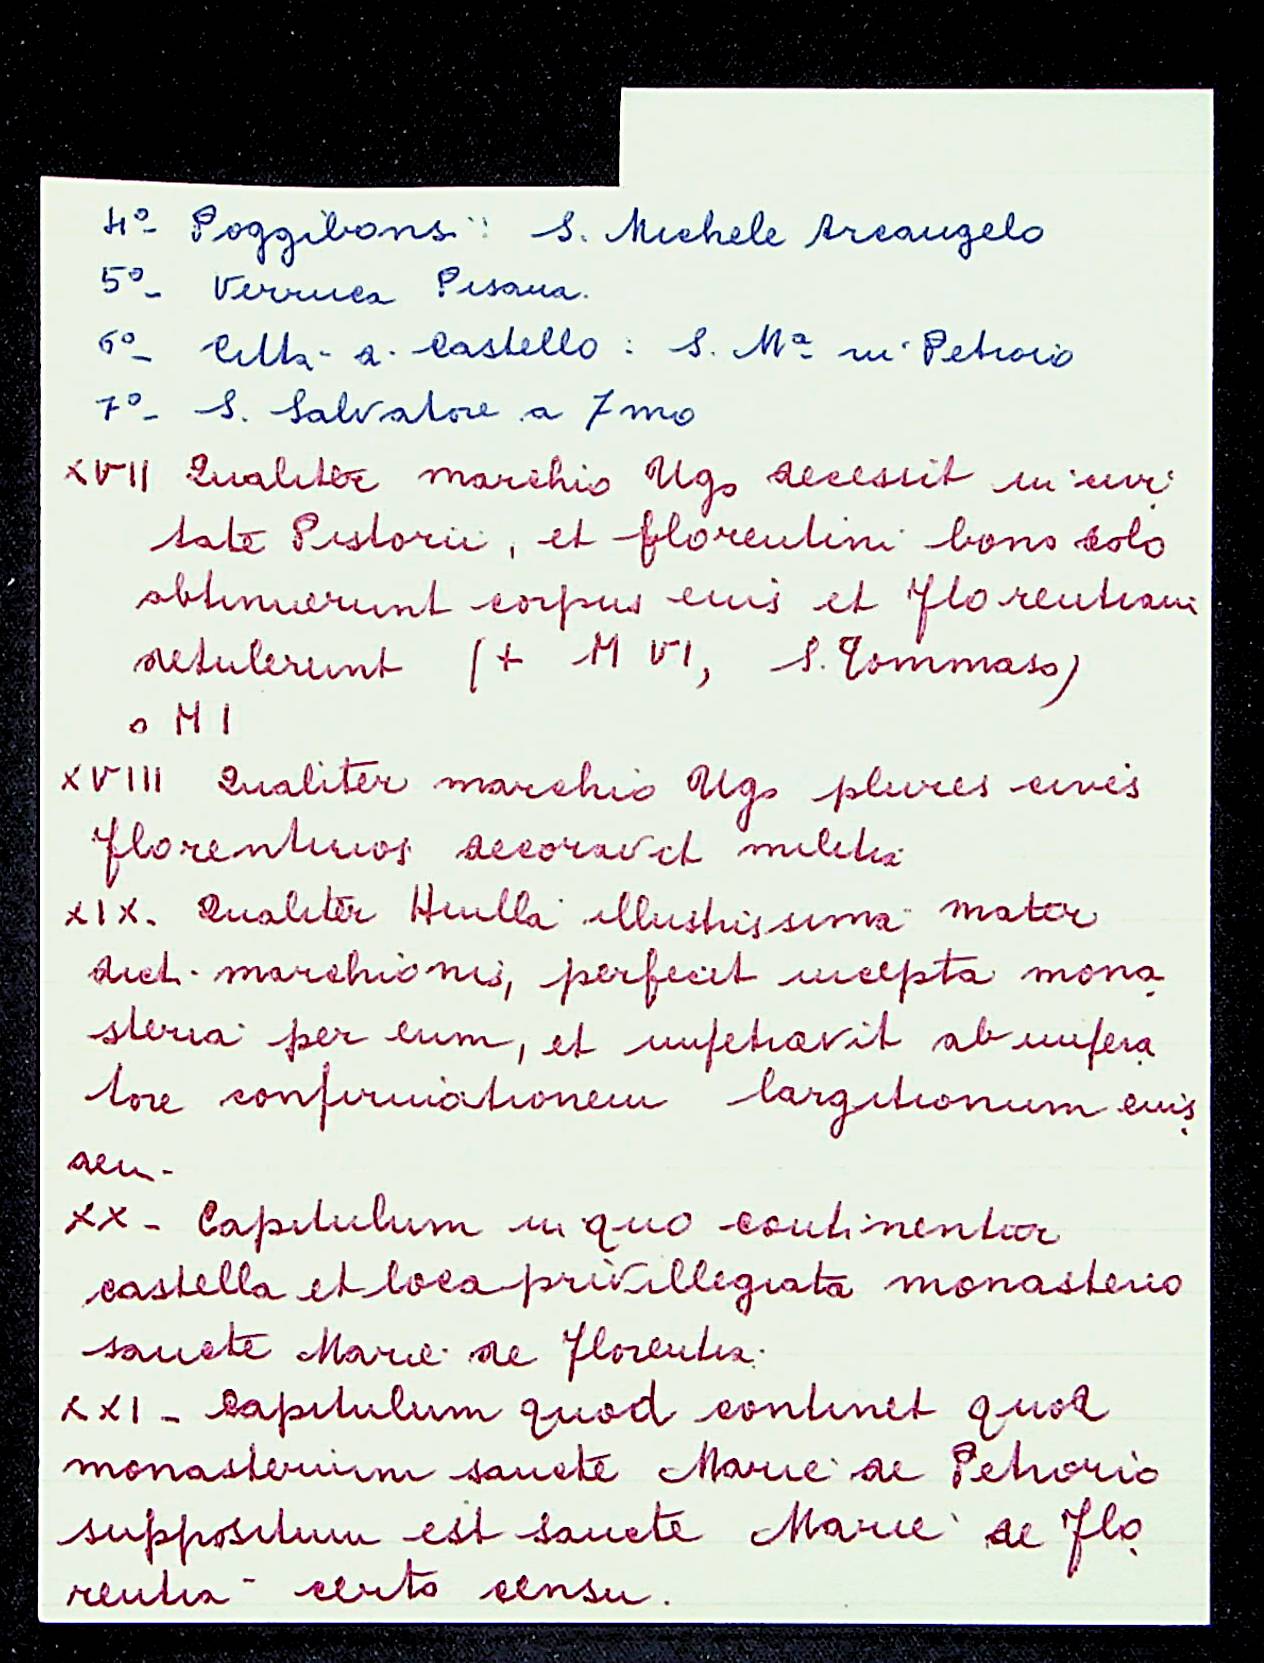 4º- Poggibonsi: S. Michele Arcangelo
5º- Verruca Pisana.
6º- Città a Castello: S. Mª in Petroio
7º- S. Salvatore a 7mo
XVII Qualiter marchio Ugo decessit in civi
tate Pistorii, et florentini bono dolo
obtinuerunt corpus eius et Florentiam
detulerunt (+ M VI, S. Tommaso)
o M I
XVIII Qualiter marchio Ugo plures cives
florentinos decoravit militia
XIX. Qualiter Huilla illustrissima mater
dicti marchionis, perfecit incepta mona
steria per eum, et impetravit ab impera
tore confirmationem largitionum eius
dem-
XX- Capitulum in quo continentur
castella et loca privillegiata monasterio
sancte Marie de Florentia.
XXI- Capitulum quod continet quod
monasterium sancte Marie de Petrorio
suppositum est sancte Marie de Flo
rentia certo censu.